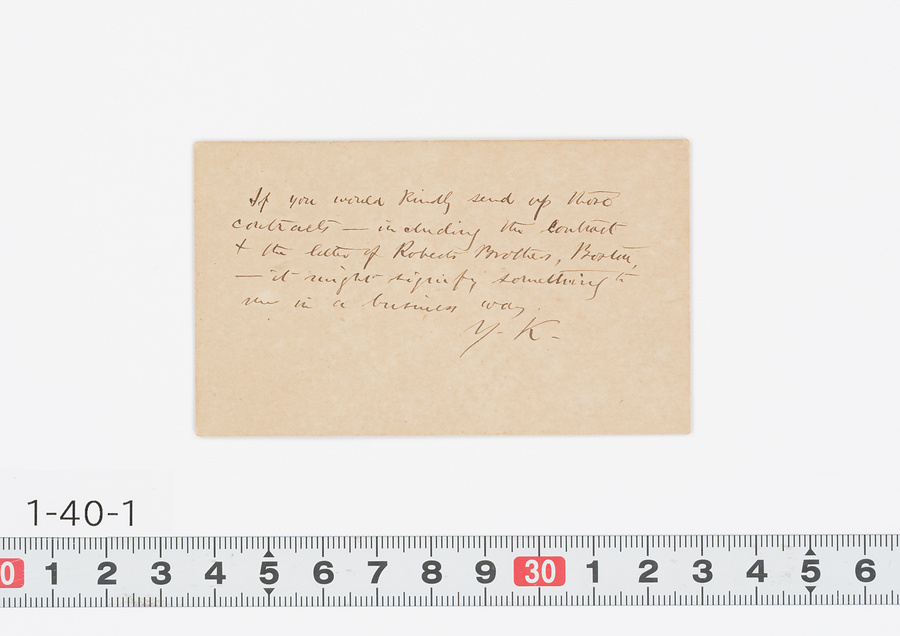 If you would kindly send up those
contracts — including the contract
+ the letter of Roberts Brothers, Boston,
— it might signify something to
me in a business way.
Y. K.
1-40-1
0 1 2 3 4 5 6 7 8 9 30 1 2 3 4 5 6